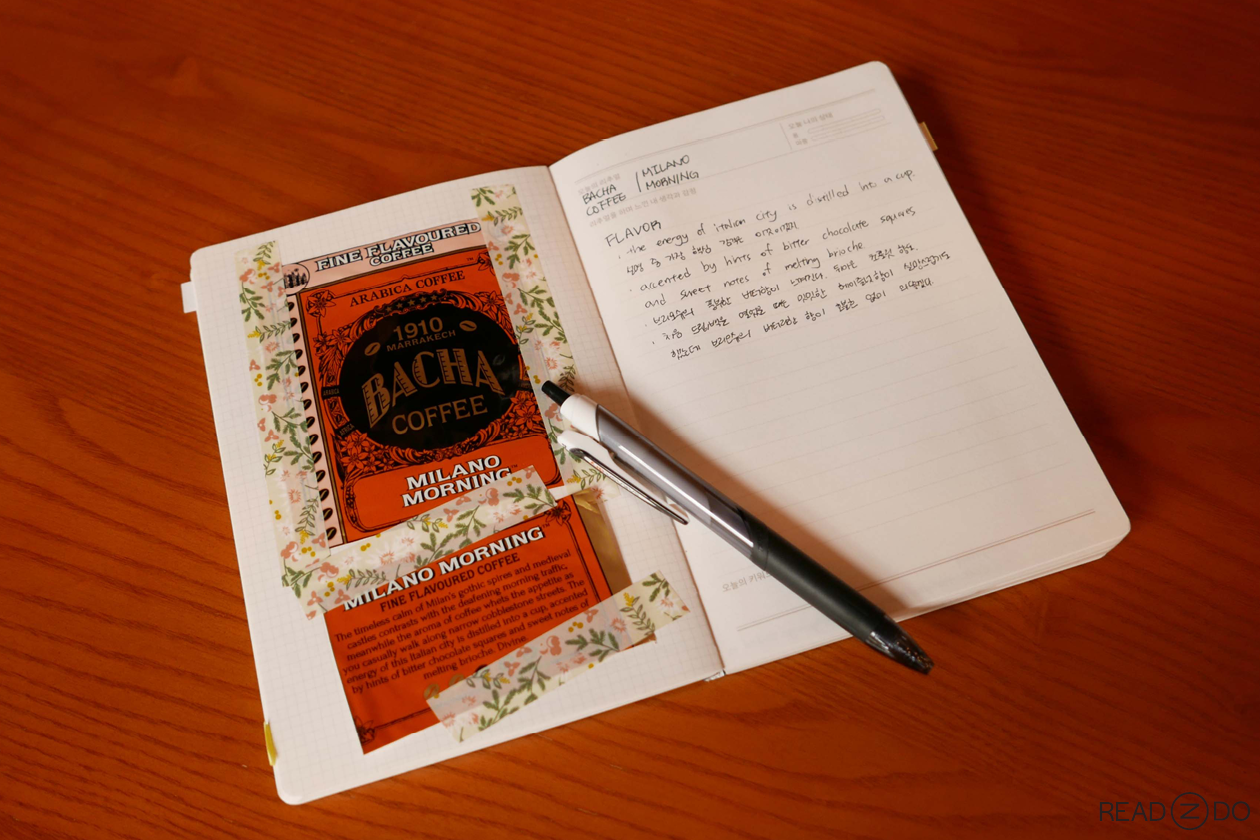 FINE FLAVOURED
COFFEE
ARABICA COFFEE
1910
MARRAKECH
BACHA
COFFEE
MILANO
MORNING
MILANO MORNING
FINE FLAVOURED COFFEE
The timeless calm of Milan's gothic spires and medieval
castles contrasts with the deafening morning traffic,
meanwhile the aroma of coffee whets the appetite as
you casually walk along narrow cobblestone streets. The
energy of this Italian city is distilled into a cup, accented
by hints of bitter chocolate squares and sweet notes of
melting brioche. Divine
오늘의 리추얼
오늘 나의 상태
BACHA
COFFEE
MILANO
MORNING
리추얼을 하며 느낀 내 생각과 감정
FLAVOR
· the energy of italian city is distilled into a cup.
· accented by hints of bitter chocolate squares
and sweet notes of melting brioche
· 브리오슈의 버터향이 느껴진다.
· 처음 드립백을 열었을 때는
했는데 브리오슈의 버터리한 향이
오늘의 키워드
READ Z DO